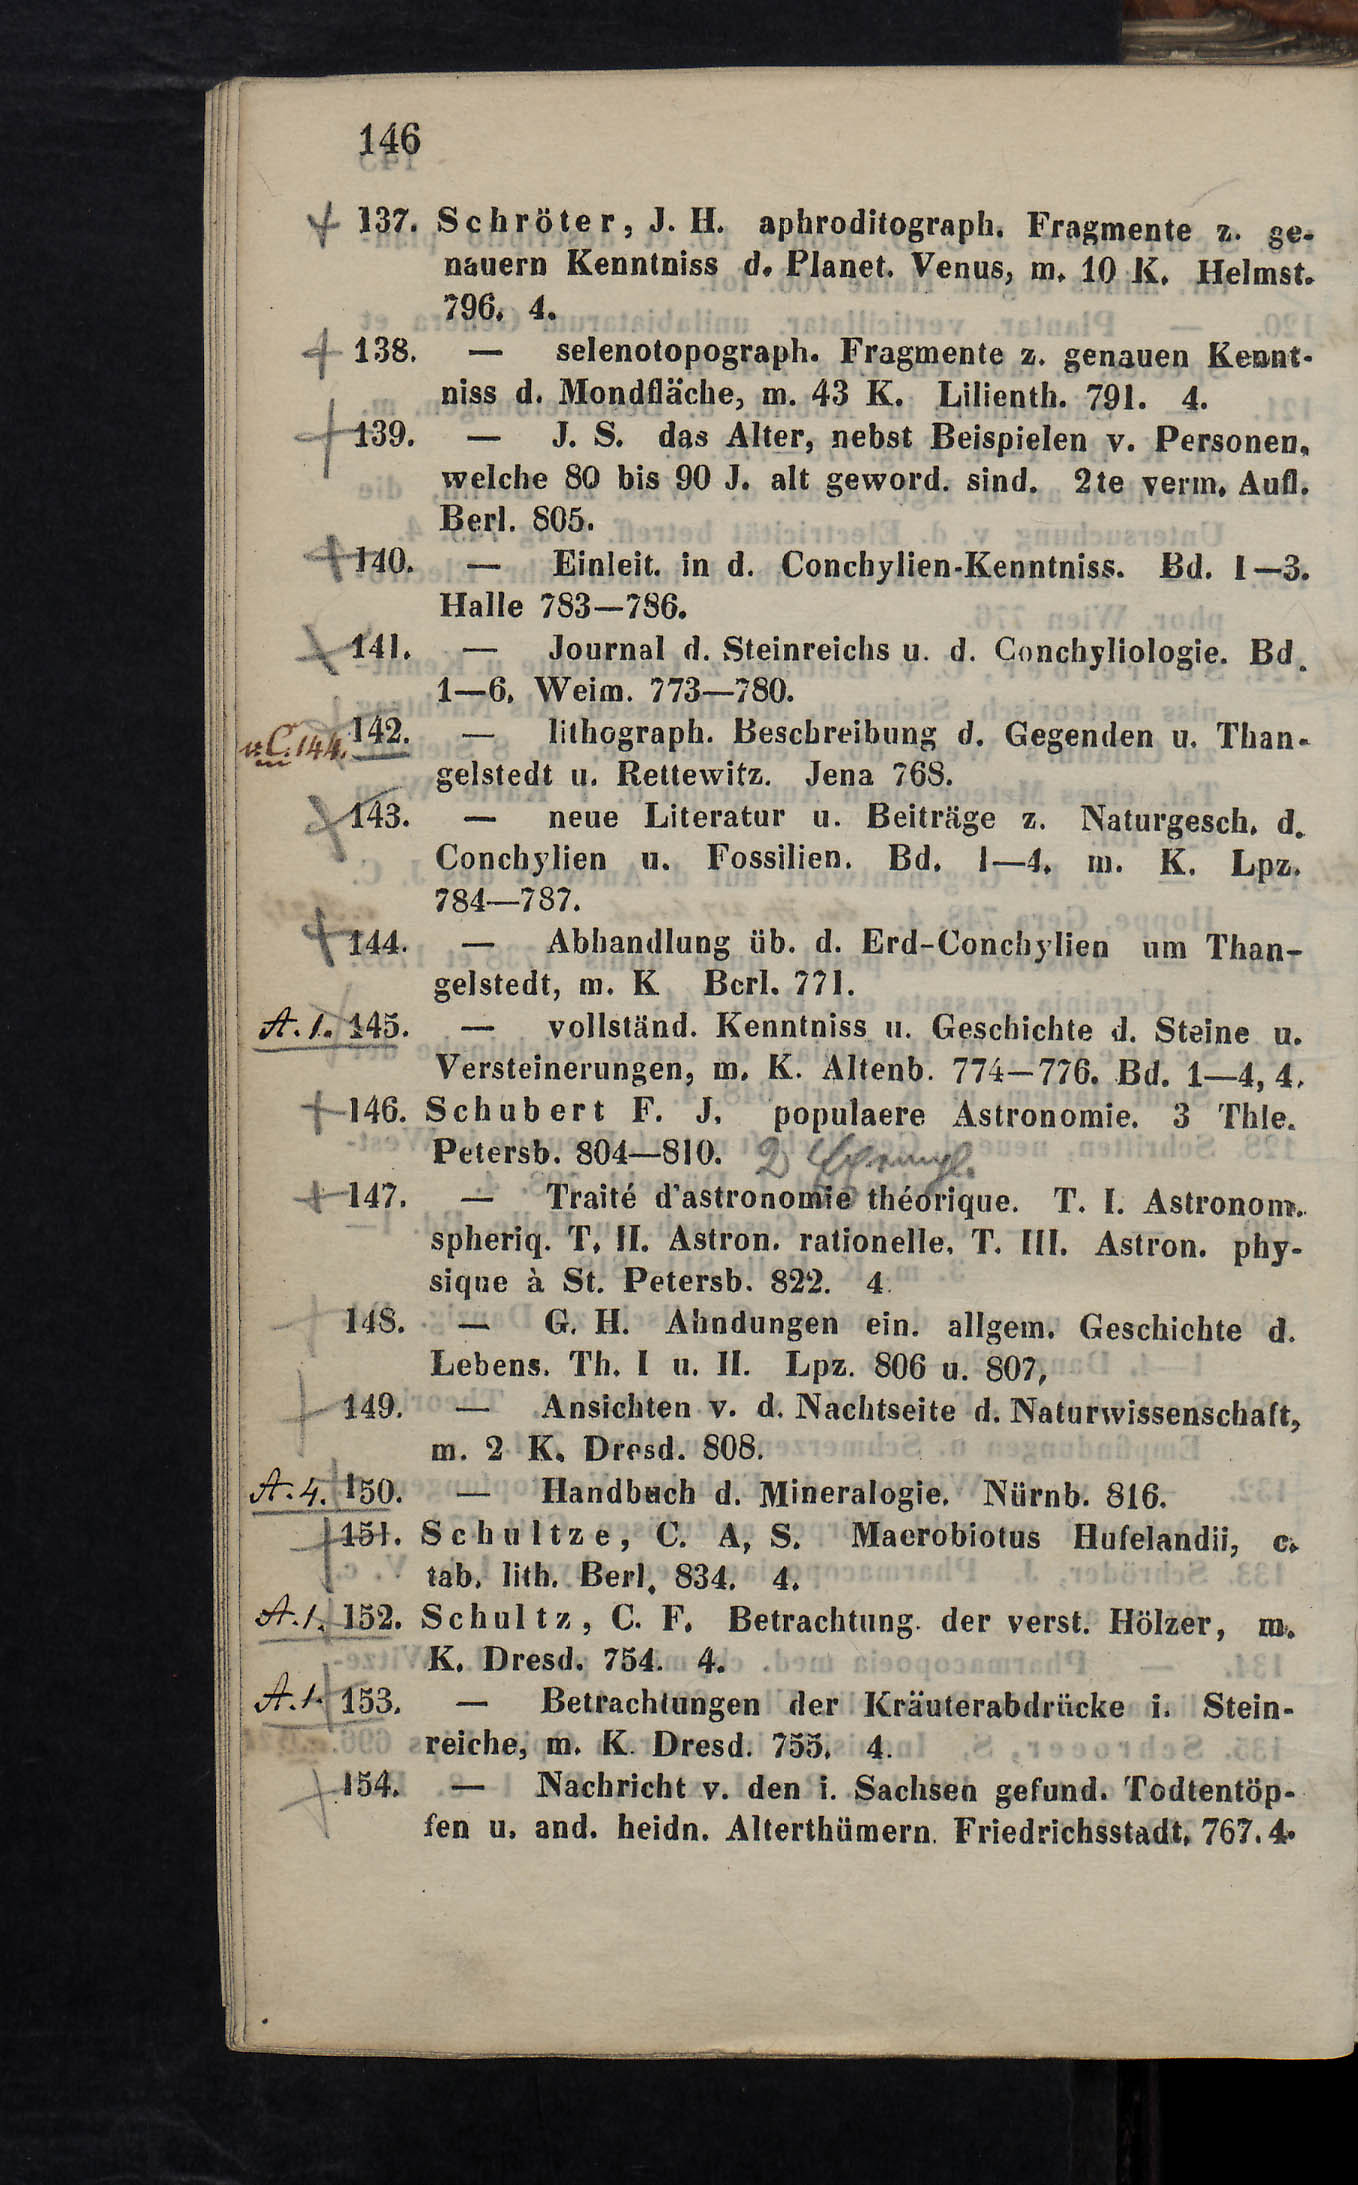 146
137. Schröter, J. H. aphroditograph. Fragmente z. ge-
nauern Kenntniss d. Planet. Venus, m. 10 K. Helmst.
796. 4.
138. — selenotopograph. Fragmente z. genauen Kennt-
niss d. Mondfläche, m. 43 K. Lilienth. 791. 4.
139. — J. S. das Alter, nebst Beispielen v. Personen,
welche 80 bis 90 J. alt geword. sind. 2te verm. Aufl.
Berl. 805.
140. — Einleit. in d. Conchylien-Kenntniss. Bd. 1—3.
Halle 783—786.
141. — Journal d. Steinreichs u. d. Conchyliologie. Bd.
1—6. Weim. 773—780.
144. 142. — lithograph. Beschreibung d. Gegenden u. Than-
gelstedt u. Rettewitz. Jena 768.
143. — neue Literatur u. Beiträge z. Naturgesch. d.
Conchylien u. Fossilien. Bd. 1—4. m. K. Lpz.
784—787.
144. — Abhandlung üb. d. Erd-Conchylien um Than-
gelstedt, m. K Berl. 771.
A. 1. 145. — vollständ. Kenntniss u. Geschichte d. Steine u.
Versteinerungen, m. K. Altenb. 774—776. Bd. 1—4, 4.
146. Schubert F. J. populaere Astronomie. 3 Thle.
Petersb. 804—810.
147. — Traité d'astronomie théorique. T. I. Astronom.
spheriq. T. II. Astron. rationelle. T. III. Astron. phy-
sique à St. Petersb. 822. 4.
148. — G. H. Ahndungen ein. allgem. Geschichte d.
Lebens. Th. I u. II. Lpz. 806 u. 807,
149. — Ansichten v. d. Nachtseite d. Naturwissenschaft,
m. 2 K. Dresd. 808.
A. 4. 150. — Handbuch d. Mineralogie. Nürnb. 816.
151. Schultze, C. A, S. Macrobiotus Hufelandii, c.
tab. lith. Berl. 834. 4.
A. 1. 152. Schultz, C. F. Betrachtung. der verst. Hölzer, m.
K. Dresd. 754. 4.
A. 1. 153. — Betrachtungen der Kräuterabdrücke i. Stein-
reiche, m. K. Dresd. 755. 4.
154. — Nachricht v. den i. Sachsen gefund. Todtentöp-
fen u. and. heidn. Alterthümern. Friedrichsstadt, 767. 4.